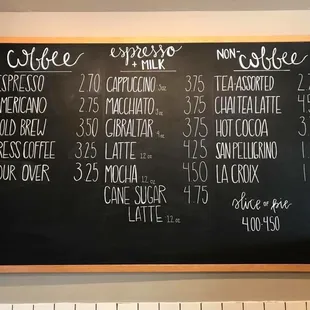 coffee
ESPRESSO 2.70
MERICANO 2.75
OLD BREW 3.50
RESS COFFEE 3.25
OUR OVER 3.25
espresso
+ MILK
CAPPUCCINO 3.75
MACCHIATO 3.75
GIBRALTAR 3.75
LATTE 12oz 4.25
MOCHA 12oz 4.50
CANE SUGAR 4.75
LATTE 12oz
NON-
coffee
TEA-ASSORTED 2.
CHAI TEA LATTE 4.
HOT COCOA 3.
SAN PELLIGRINO 1.
LA CROIX 1.
slice of pie
4.00-4.50